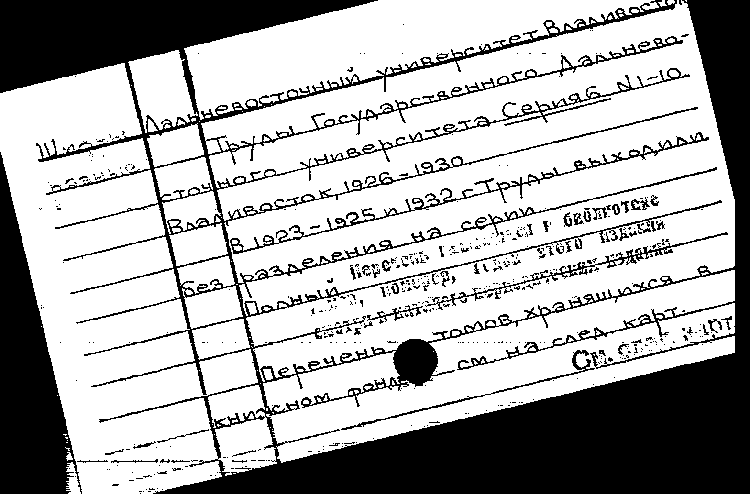 Дальневосточный университет Владивосток
Шифры Труды Государственного Дальнево-
разные сточного университета Серия 6 N1-10
Владивосток, 1926-1930
В 1923-1925 и 1932 г. Труды выходили
без разделения на серии
Полный Перечень имеющихся в библиотеке
томов, номеров, годов этого издания
смотри в каталоге периодических изданий
Перечень томов, хранящихся в
книжном фонде см. на след. карт.
См. след. карт